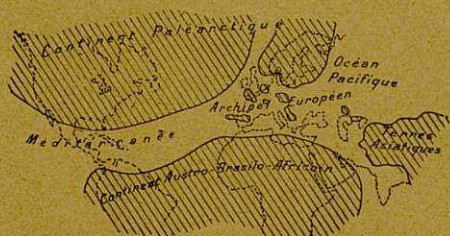 Continent Paléarctique
Océan
Pacifique
Archipel Européen
Terres
Asiatiques
Méditerranée
Continent Austro-Brasilo-Africain